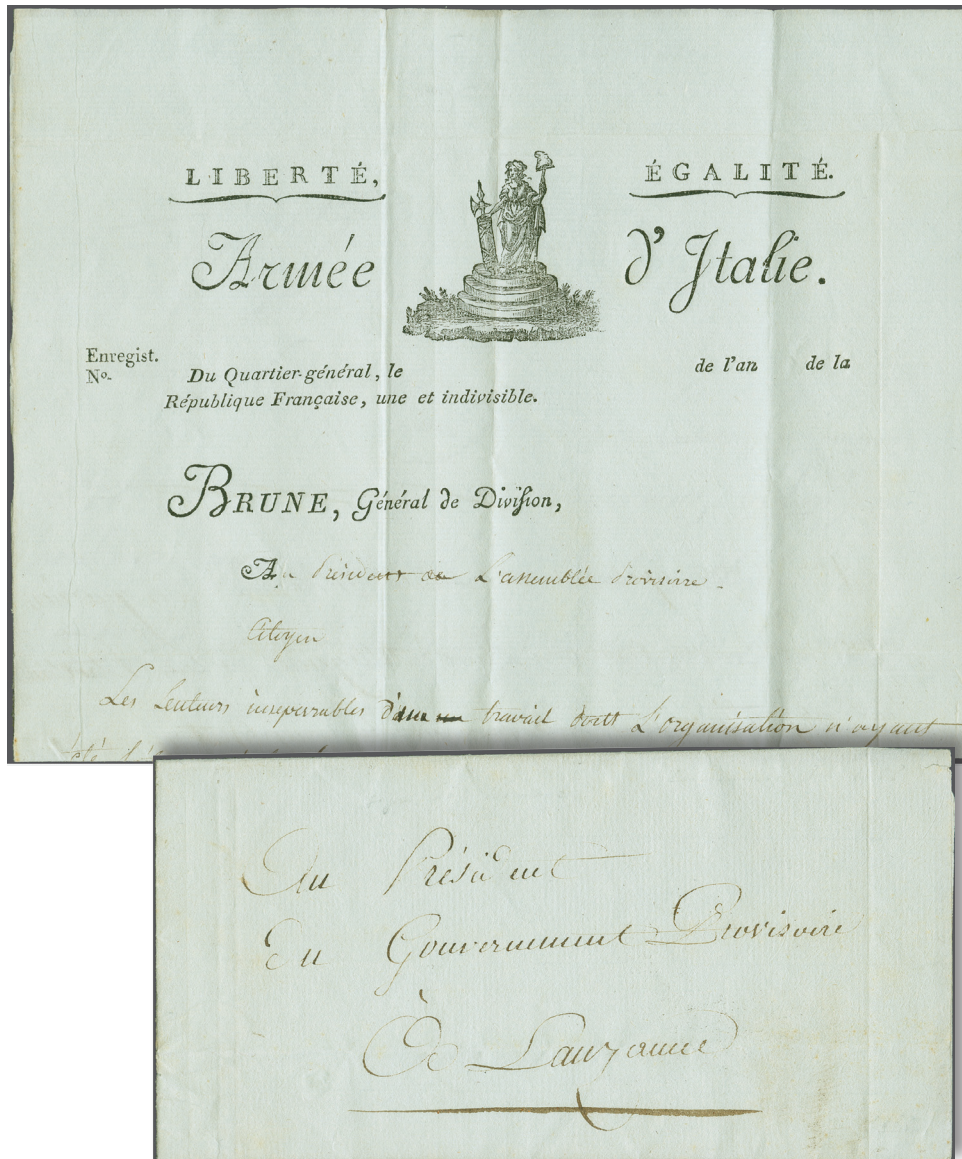 LIBERTÉ, ÉGALITÉ.
Armée d'Italie.
Enregist.
No.
Du Quartier-général, le de l'an de la
République Française, une et indivisible.
BRUNE, Général de Division,
Au Président de L'assemblée Provisoire
Citoyen
Les Lenteurs inseparables d'un travail dont L'organisation n'ayant
été
Au Président
Du Gouvernement Provisoire
De Lauzanne